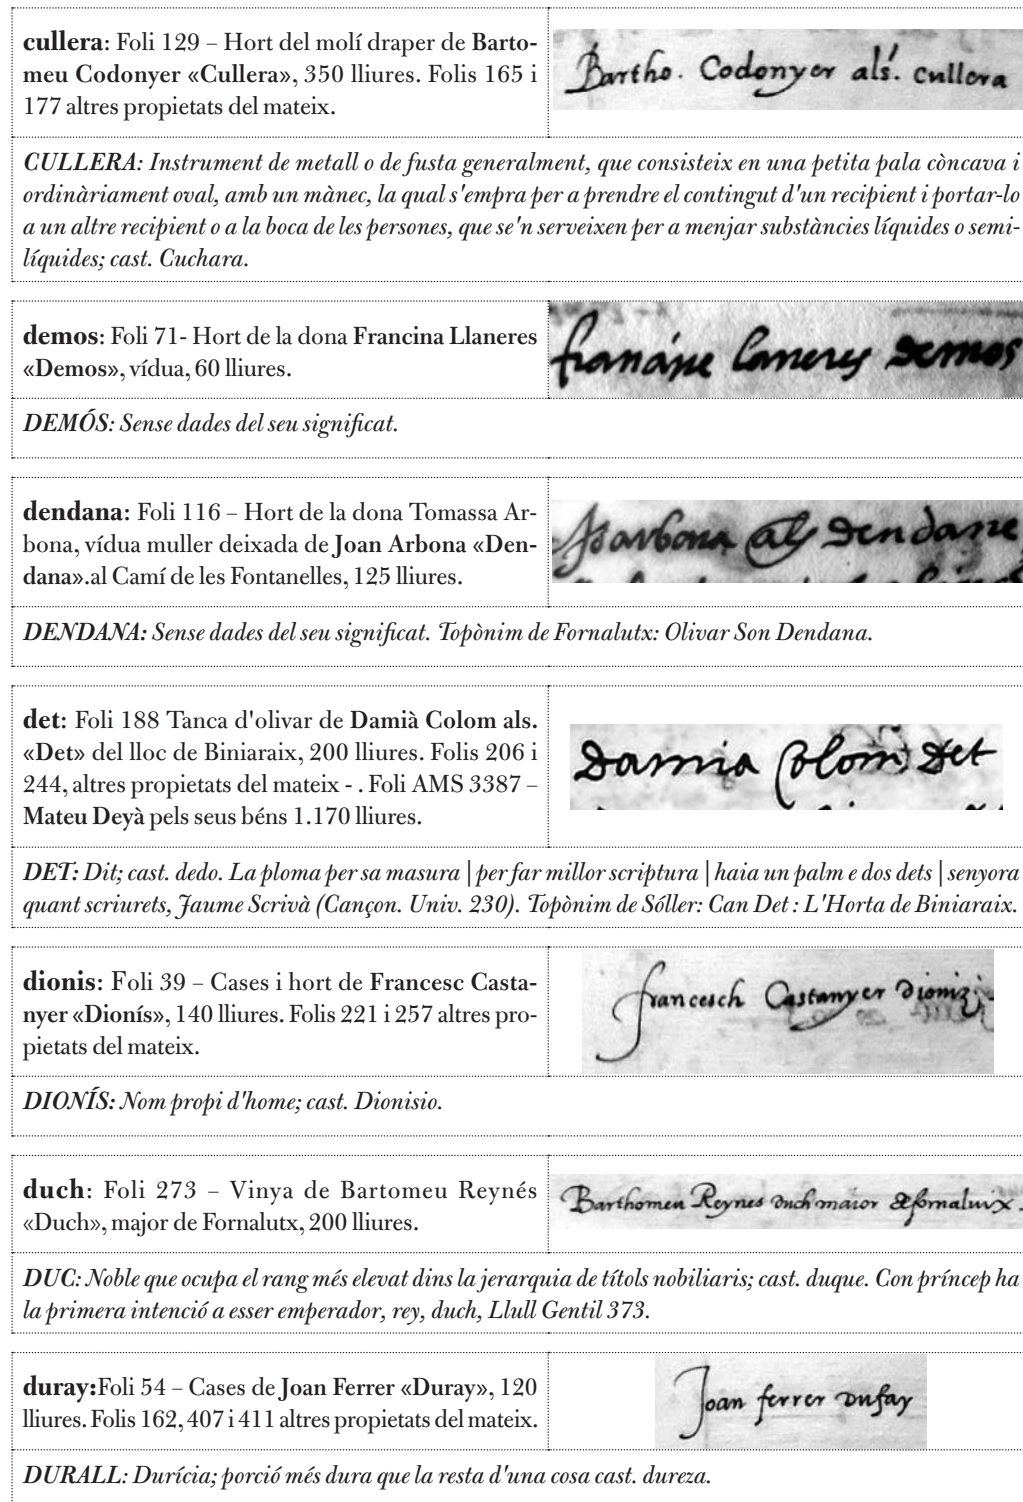 cullera: Foli 129 – Hort del molí draper de Barto-
meu Codonyer «Cullera», 350 lliures. Folis 165 i
177 altres propietats del mateix.
Bartho. Codonyer als. cullera
CULLERA: Instrument de metall o de fusta generalment, que consisteix en una petita pala còncava i
ordinàriament oval, amb un mànec, la qual s'empra per a prendre el contingut d'un recipient i portar-lo
a un altre recipient o a la boca de les persones, que se'n serveixen per a menjar substàncies líquides o semi-
líquides; cast. Cuchara.
demos: Foli 71- Hort de la dona Francina Llaneres
«Demos», vídua, 60 lliures.
laneres Demos
DEMÓS: Sense dades del seu significat.
dendana: Foli 116 – Hort de la dona Tomassa Ar-
bona, vídua muller deixada de Joan Arbona «Den-
dana».al Camí de les Fontanelles, 125 lliures.
arbona als Dendane
DENDANA: Sense dades del seu significat. Topònim de Fornalutx: Olivar Son Dendana.
det: Foli 188 Tanca d'olivar de Damià Colom als.
«Det» del lloc de Biniaraix, 200 lliures. Folis 206 i
244, altres propietats del mateix - . Foli AMS 3387 –
Mateu Deyà pels seus béns 1.170 lliures.
Damia Colom Det
DET: Dit; cast. dedo. La ploma per sa masura | per far millor scriptura | haia un palm e dos dets | senyora
quant scriurets, Jaume Scrivà (Cançon. Univ. 230). Topònim de Sóller: Can Det : L'Horta de Biniaraix.
dionis: Foli 39 – Cases i hort de Francesc Casta-
nyer «Dionís», 140 lliures. Folis 221 i 257 altres pro-
pietats del mateix.
francesch Castanyer Dioniz
DIONÍS: Nom propi d'home; cast. Dionisio.
duch: Foli 273 – Vinya de Bartomeu Reynés
«Duch», major de Fornalutx, 200 lliures.
Barthomeu Reynes duch maior de fornaluix
DUC: Noble que ocupa el rang més elevat dins la jerarquia de títols nobiliaris; cast. duque. Con príncep ha
la primera intenció a esser emperador, rey, duch, Llull Gentil 373.
duray:Foli 54 – Cases de Joan Ferrer «Duray», 120
lliures. Folis 162, 407 i 411 altres propietats del mateix.
Joan ferrer
DURALL: Durícia; porció més dura que la resta d'una cosa cast. dureza.